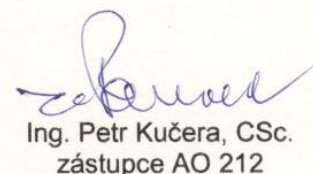 Ing. Petr Kučera, CSc.
zástupce AO 212